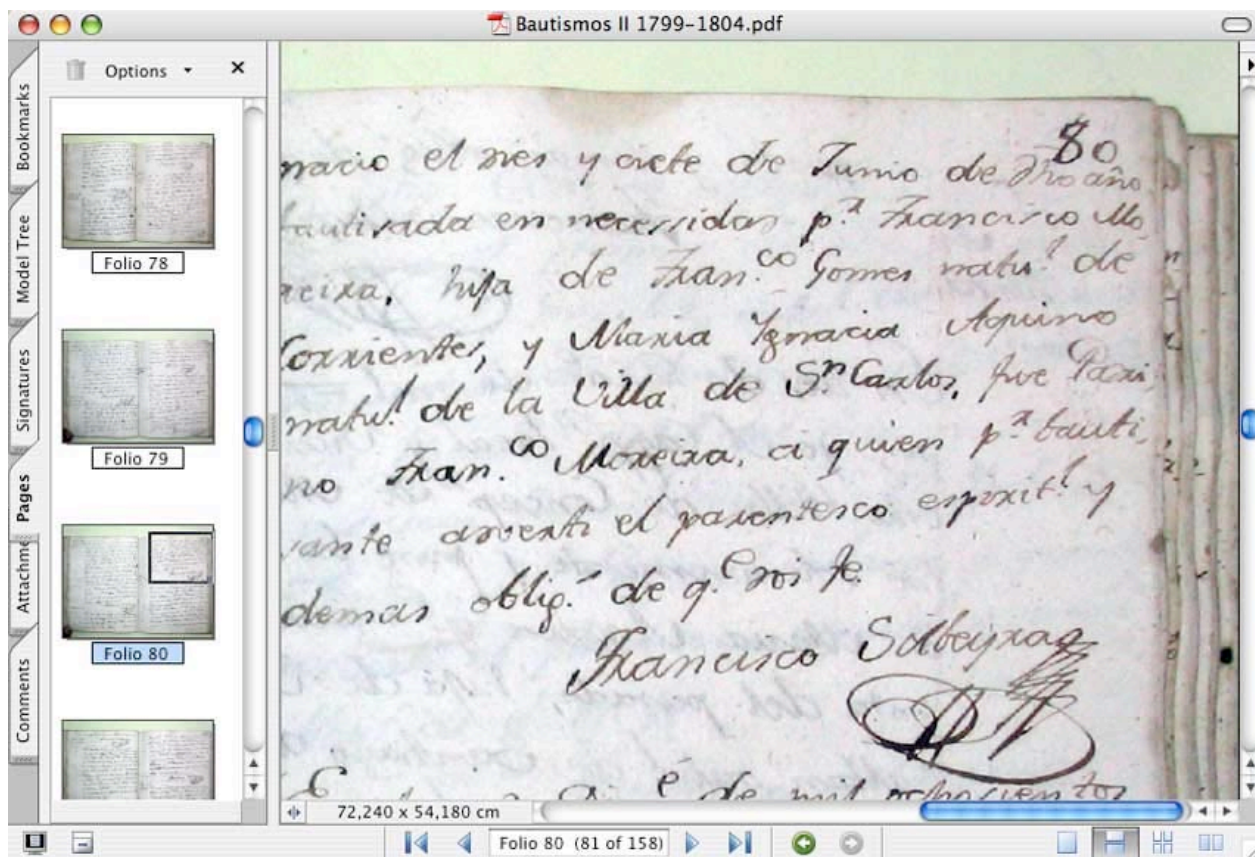 Bautismos II 1799-1804.pdf
Options
Bookmarks
Model Tree
Signatures
Pages
Attachme
Comments
Folio 78
Folio 79
Folio 80
80
nacio el dies y ciete de Junio de dho año
bautisada en necessidad p.r Francisco Mo
reira, hija de Fran.co Gomes natu.l de
Corrientes, y Maria Ygnacia Aquino
natu.l de la Villa de S.n Carlos, fue Padri,
no Fran.co Moreira, a quien p.r bauti,
sante adverti el parentesco espirit.l y
demas oblig.s de q.e doi fe.
Francisco Solbeyra
de mil ochocientos
72,240 x 54,180 cm
Folio 80 (81 of 158)